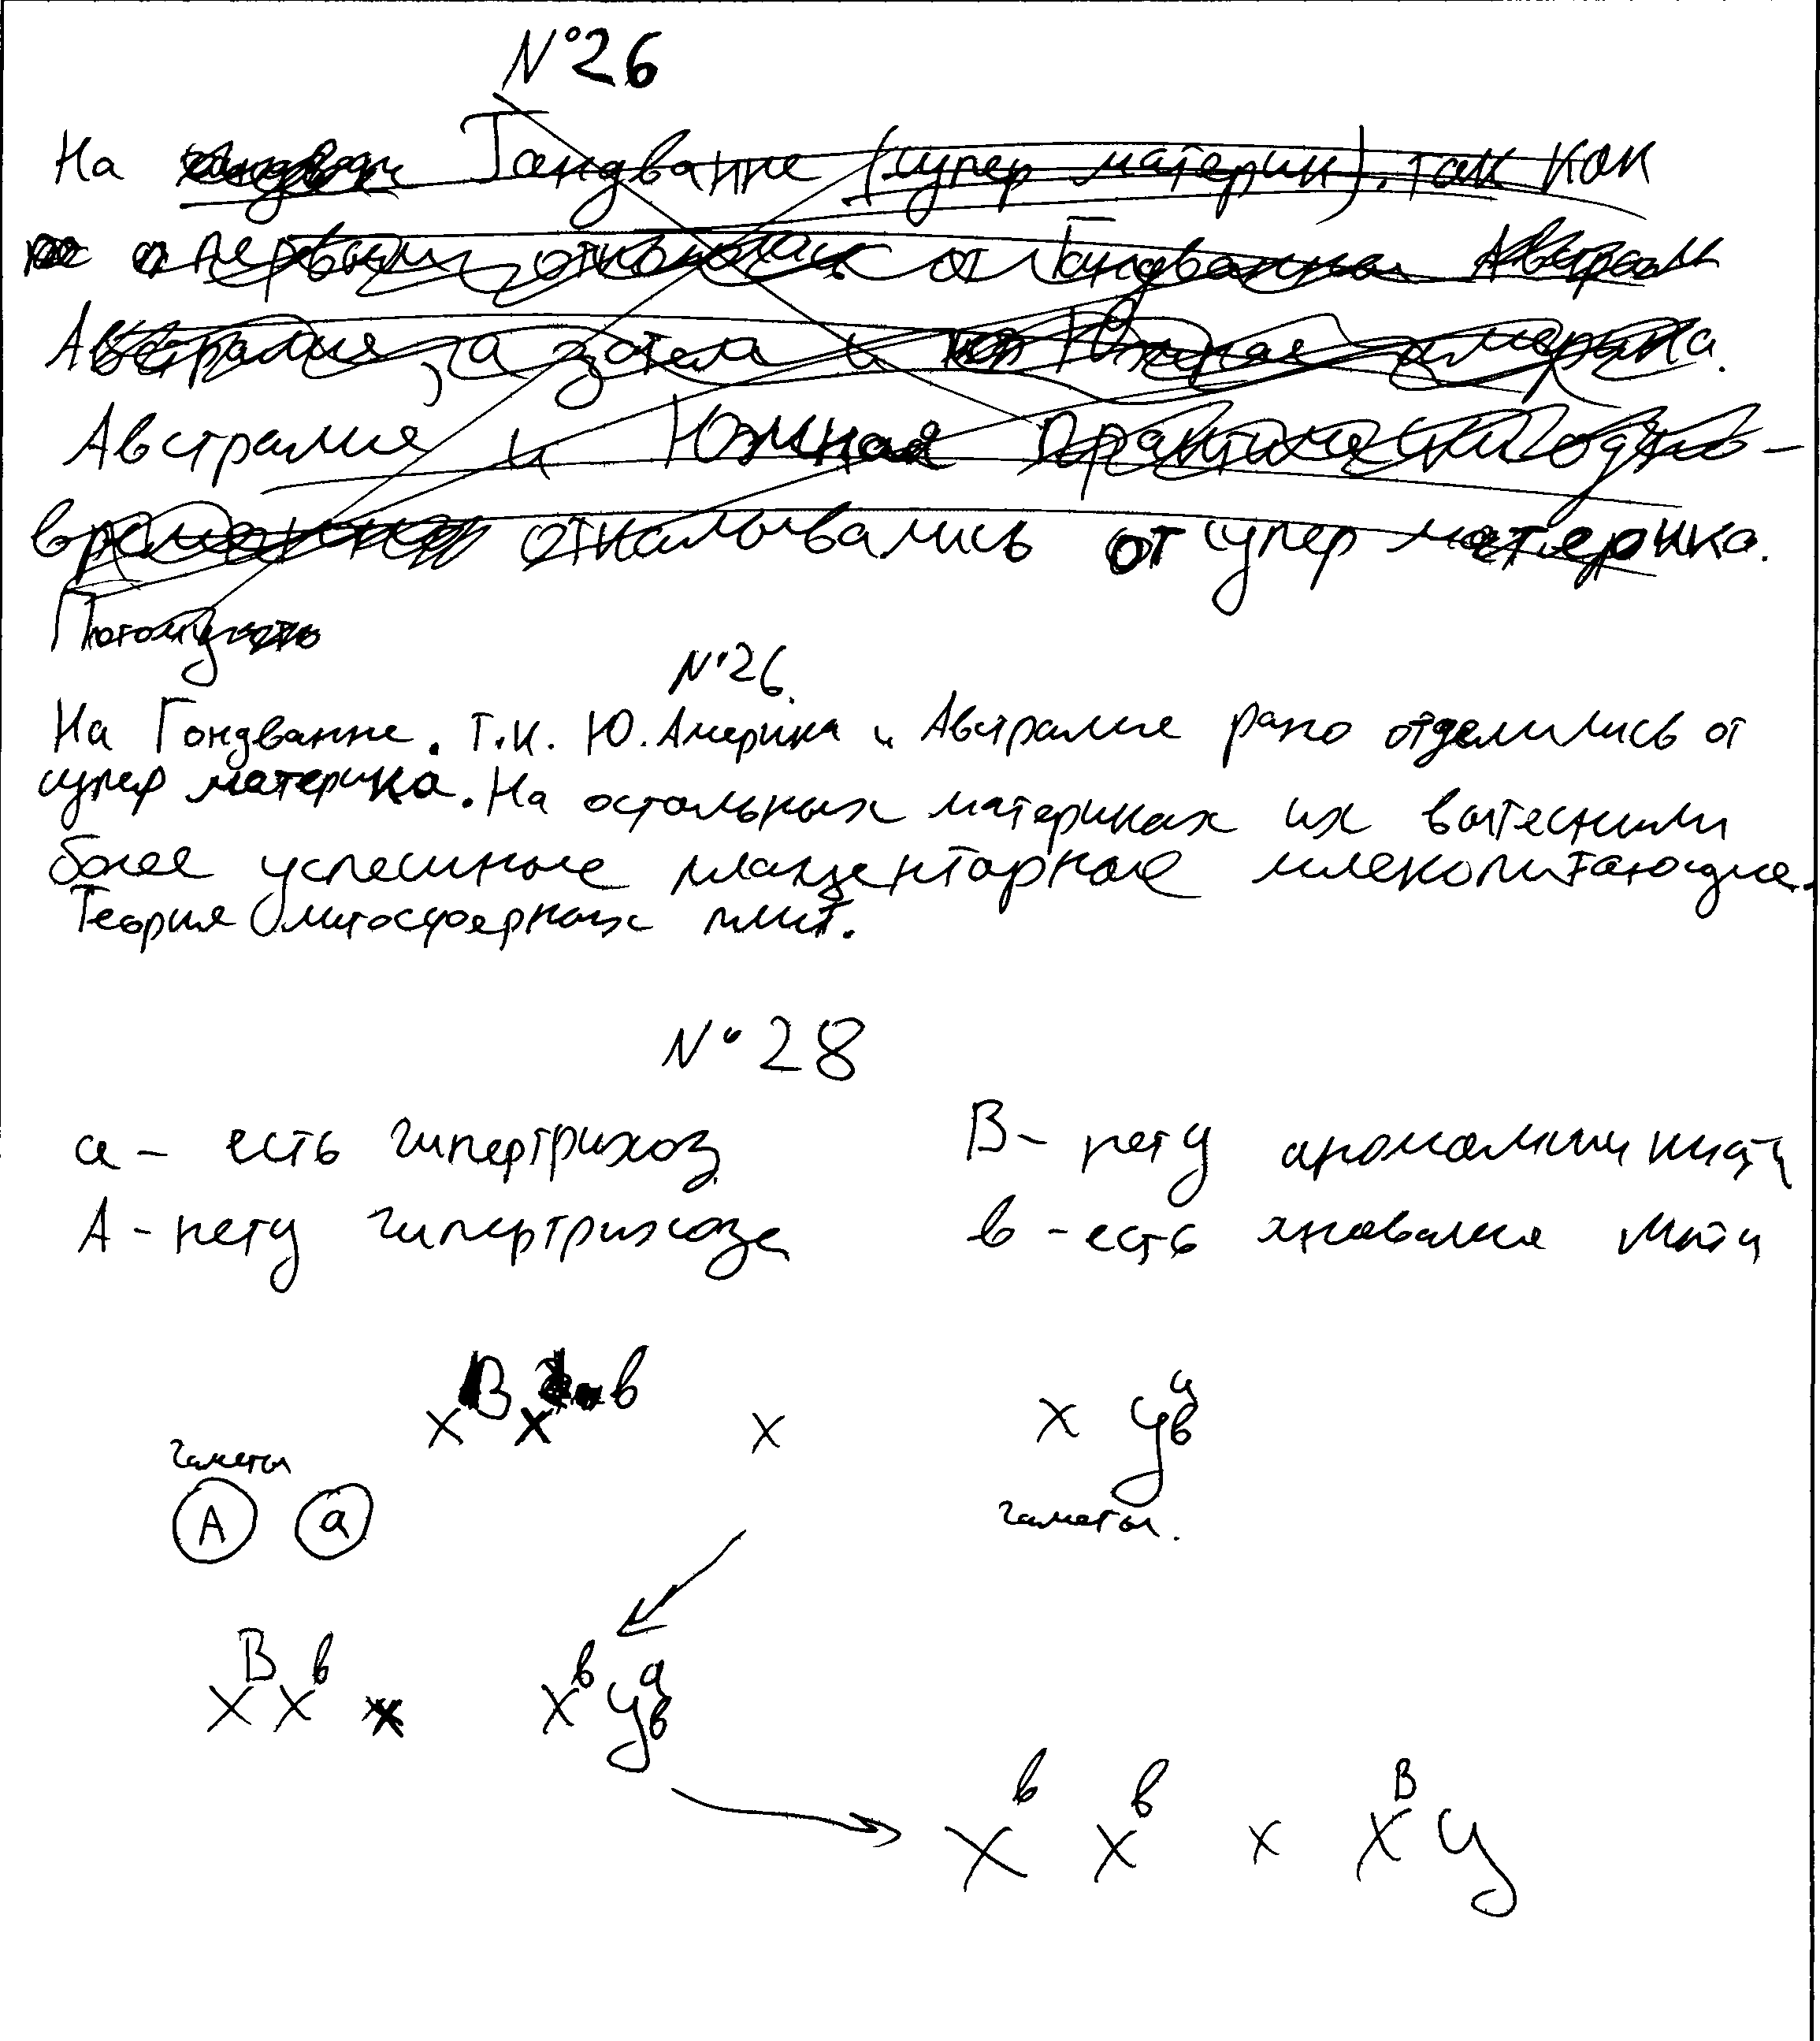 №26
На Гандванне (супер материк), так как
а первыми откололись от Гандванны Австрал
Австралия, а затем и Южная америка.
Австралия и Южная практически одно-
временно откалывались от супер материка.
Потому что
№26.
На Гондванне. Т.к. Ю. Америка и Австралия рано отделились от
супер материка. На остальных материках их вытеснили
более успешные плацентарные млекопитающие.
Теория литосферных плит.
№28
а - есть гипертрихоз B - нету аномалии
A - нету гипертрихоза в - есть
X B X в x X У а в
гаметы
A a гаметы.
X B X в X в У а в
X в X в x X B У